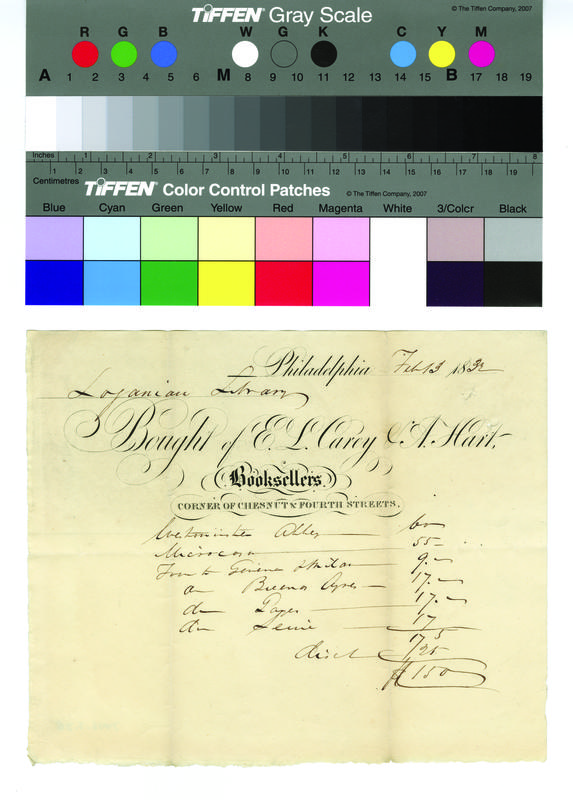 TIFFEN® Gray Scale
© The Tiffen Company, 2007
R G B W G K C Y M
A 1 2 3 4 5 6 M 8 9 10 11 12 13 14 15 B 17 18 19
Inches 1 2 3 4 5 6 7 8
Centimetres 1 2 3 4 5 6 7 8 9 10 11 12 13 14 15 16 17 18 19
TIFFEN® Color Control Patches
© The Tiffen Company, 2007
Blue Cyan Green Yellow Red Magenta White 3/Color Black
Philadelphia Feb 13 1832
Loganian Library
Bought of E. L. Carey & A. Hart,
Booksellers.
CORNER OF CHESNUT & FOURTH STREETS.
Westminster Abbey 60
Microcosm 55
Geneva & Milan 9
Buenos Ayres 17
17
17
175
disct 25
$150